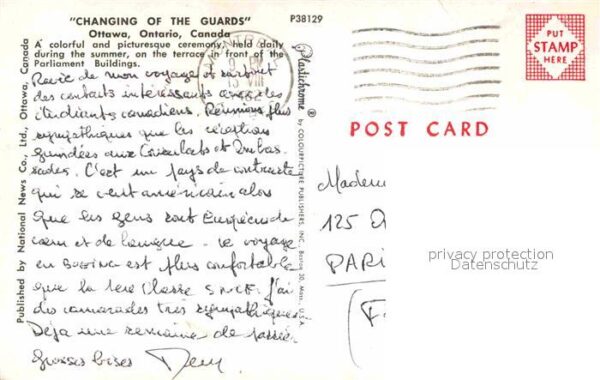 "CHANGING OF THE GUARDS"
Ottawa, Ontario, Canada
P38129
A colorful and picturesque ceremony, held daily
during the summer, on the terrace in front of the
Parliament Buildings.
Published by National News Co., Ltd., Ottawa, Canada
Ravie de mon voyage et surtout
des contacts intéressants avec les
étudiants canadiens. Réunions plus
sympathiques que les réceptions
guindées aux Consulats et Ambas
sades. C'est un pays de contraste
qui se veut américain alors
que les gens sont Européen de
cœur et de langue. Le voyage
en Boeing est plus confortable
que la 1ère Classe S.N.C.F. J'ai
des camarades très sympathiques
Déjà une semaine de passée
grosses bises
Plastichrome ®
by COLOURPICTURE PUBLISHERS, INC., Boston 30, Mass., U.S.A.
PUT
STAMP
HERE
POST CARD
Madem
125
PARI
privacy protection
Datenschutz